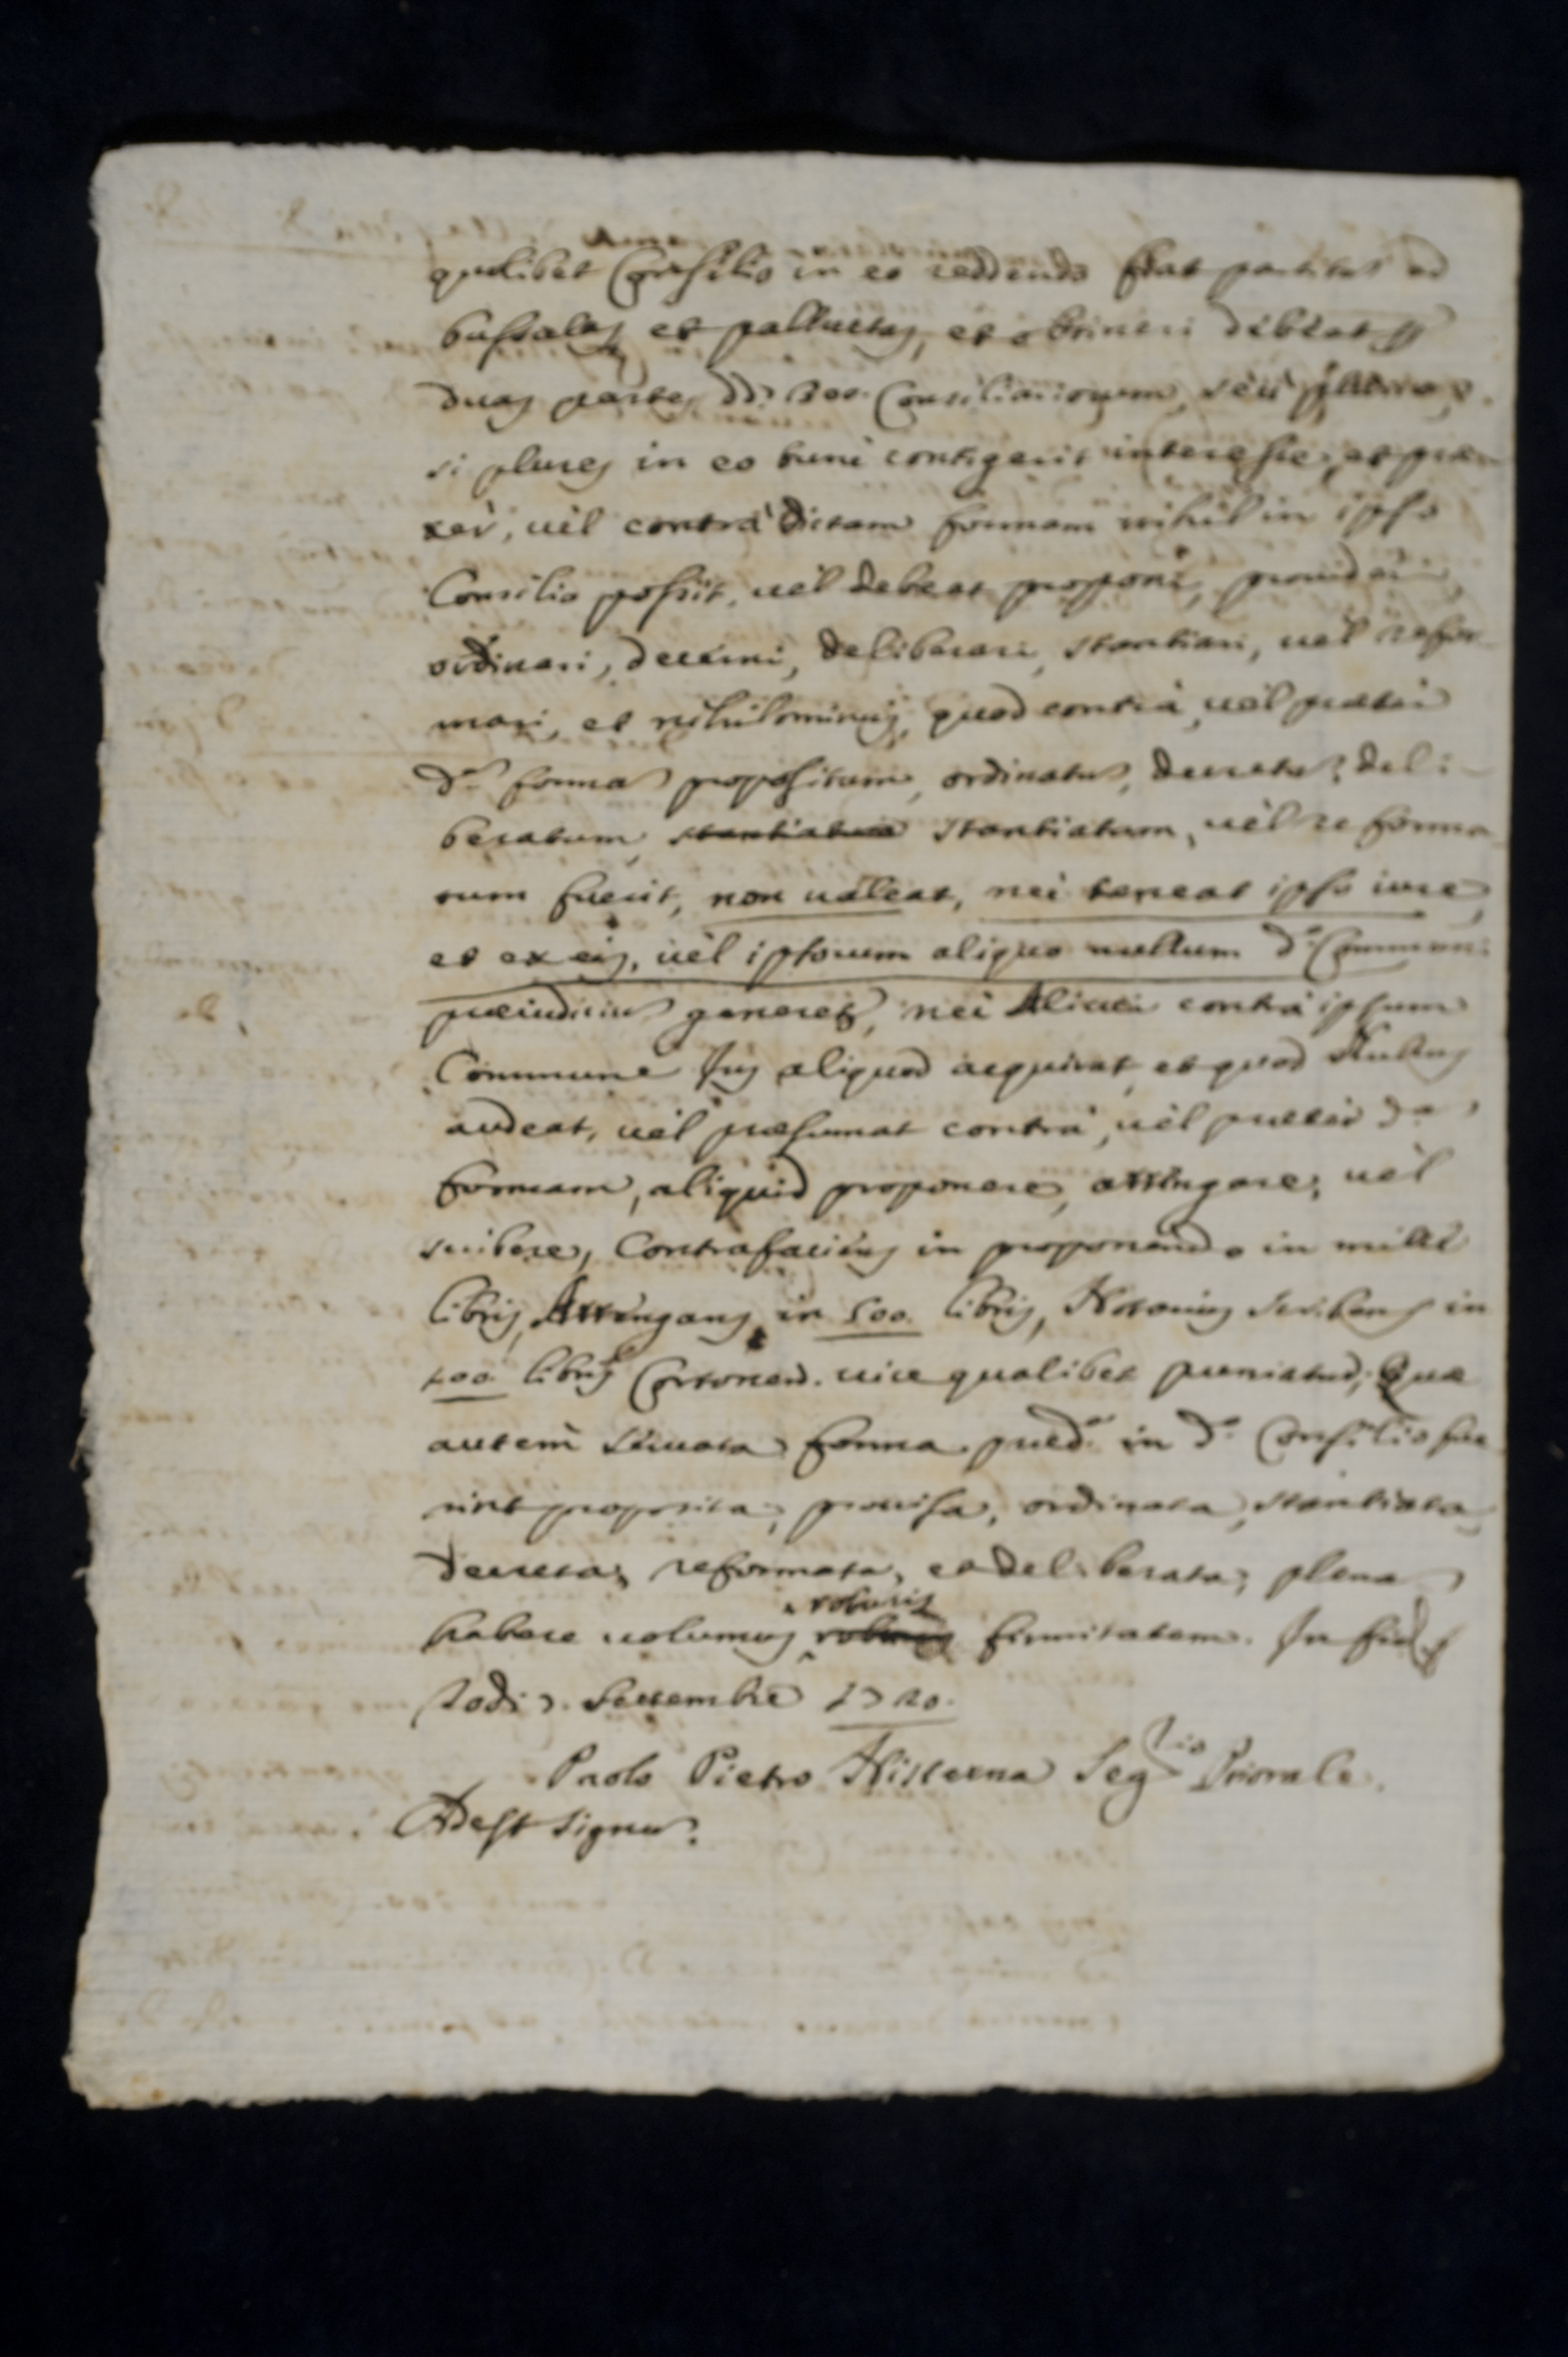 quolibet Consilio in eo reddendo fiat partitus ad
bussolas et palluctas, et obtineri debeat per
duas partes dd. 200. Consiliariorum, seu plurium
si plures in eo tunc contigerit interesse, et præ-
ter, vel contrà dictam formam nihil in ipso
Consilio possit, vel debeat proponi, provideri
ordinari, decerni, deliberari, stantiari, vel refor-
mari, et nihilominus, quod contrà, vel præter
dā forma propositum, ordinatū, decretū, deli-
beratum, stantiatum stantiatum, vel reforma-
tum fuerit, non valeat, nec teneat ipso iure,
et ex eis, vel ipsorum aliquo nullum dō Communi
præiudiciū generet, nec Alicui contrà ipsum
Commune Jus aliquod acquirat, et quod Nullus
audeat, vel præsumat contrà, vel præter dā
formam, aliquid proponere, arringare, vel
scribere, Contrafaciens in proponendo in mille
libris, Arringans in 500. libris, Notarius scribens in
400. libris Corronen. vice qualibet puniatur; Quæ
autem servata forma prædā in dō Consilio fue-
rint proposita, provisa, ordinata, stantiata
decreta, reformata, et deliberata, plena
habere volumus roboris firmitatem. In fid
Todi 7. Settembre 1720.
Paolo Pietro Histerna Segrio Priorale.
Adest signū.